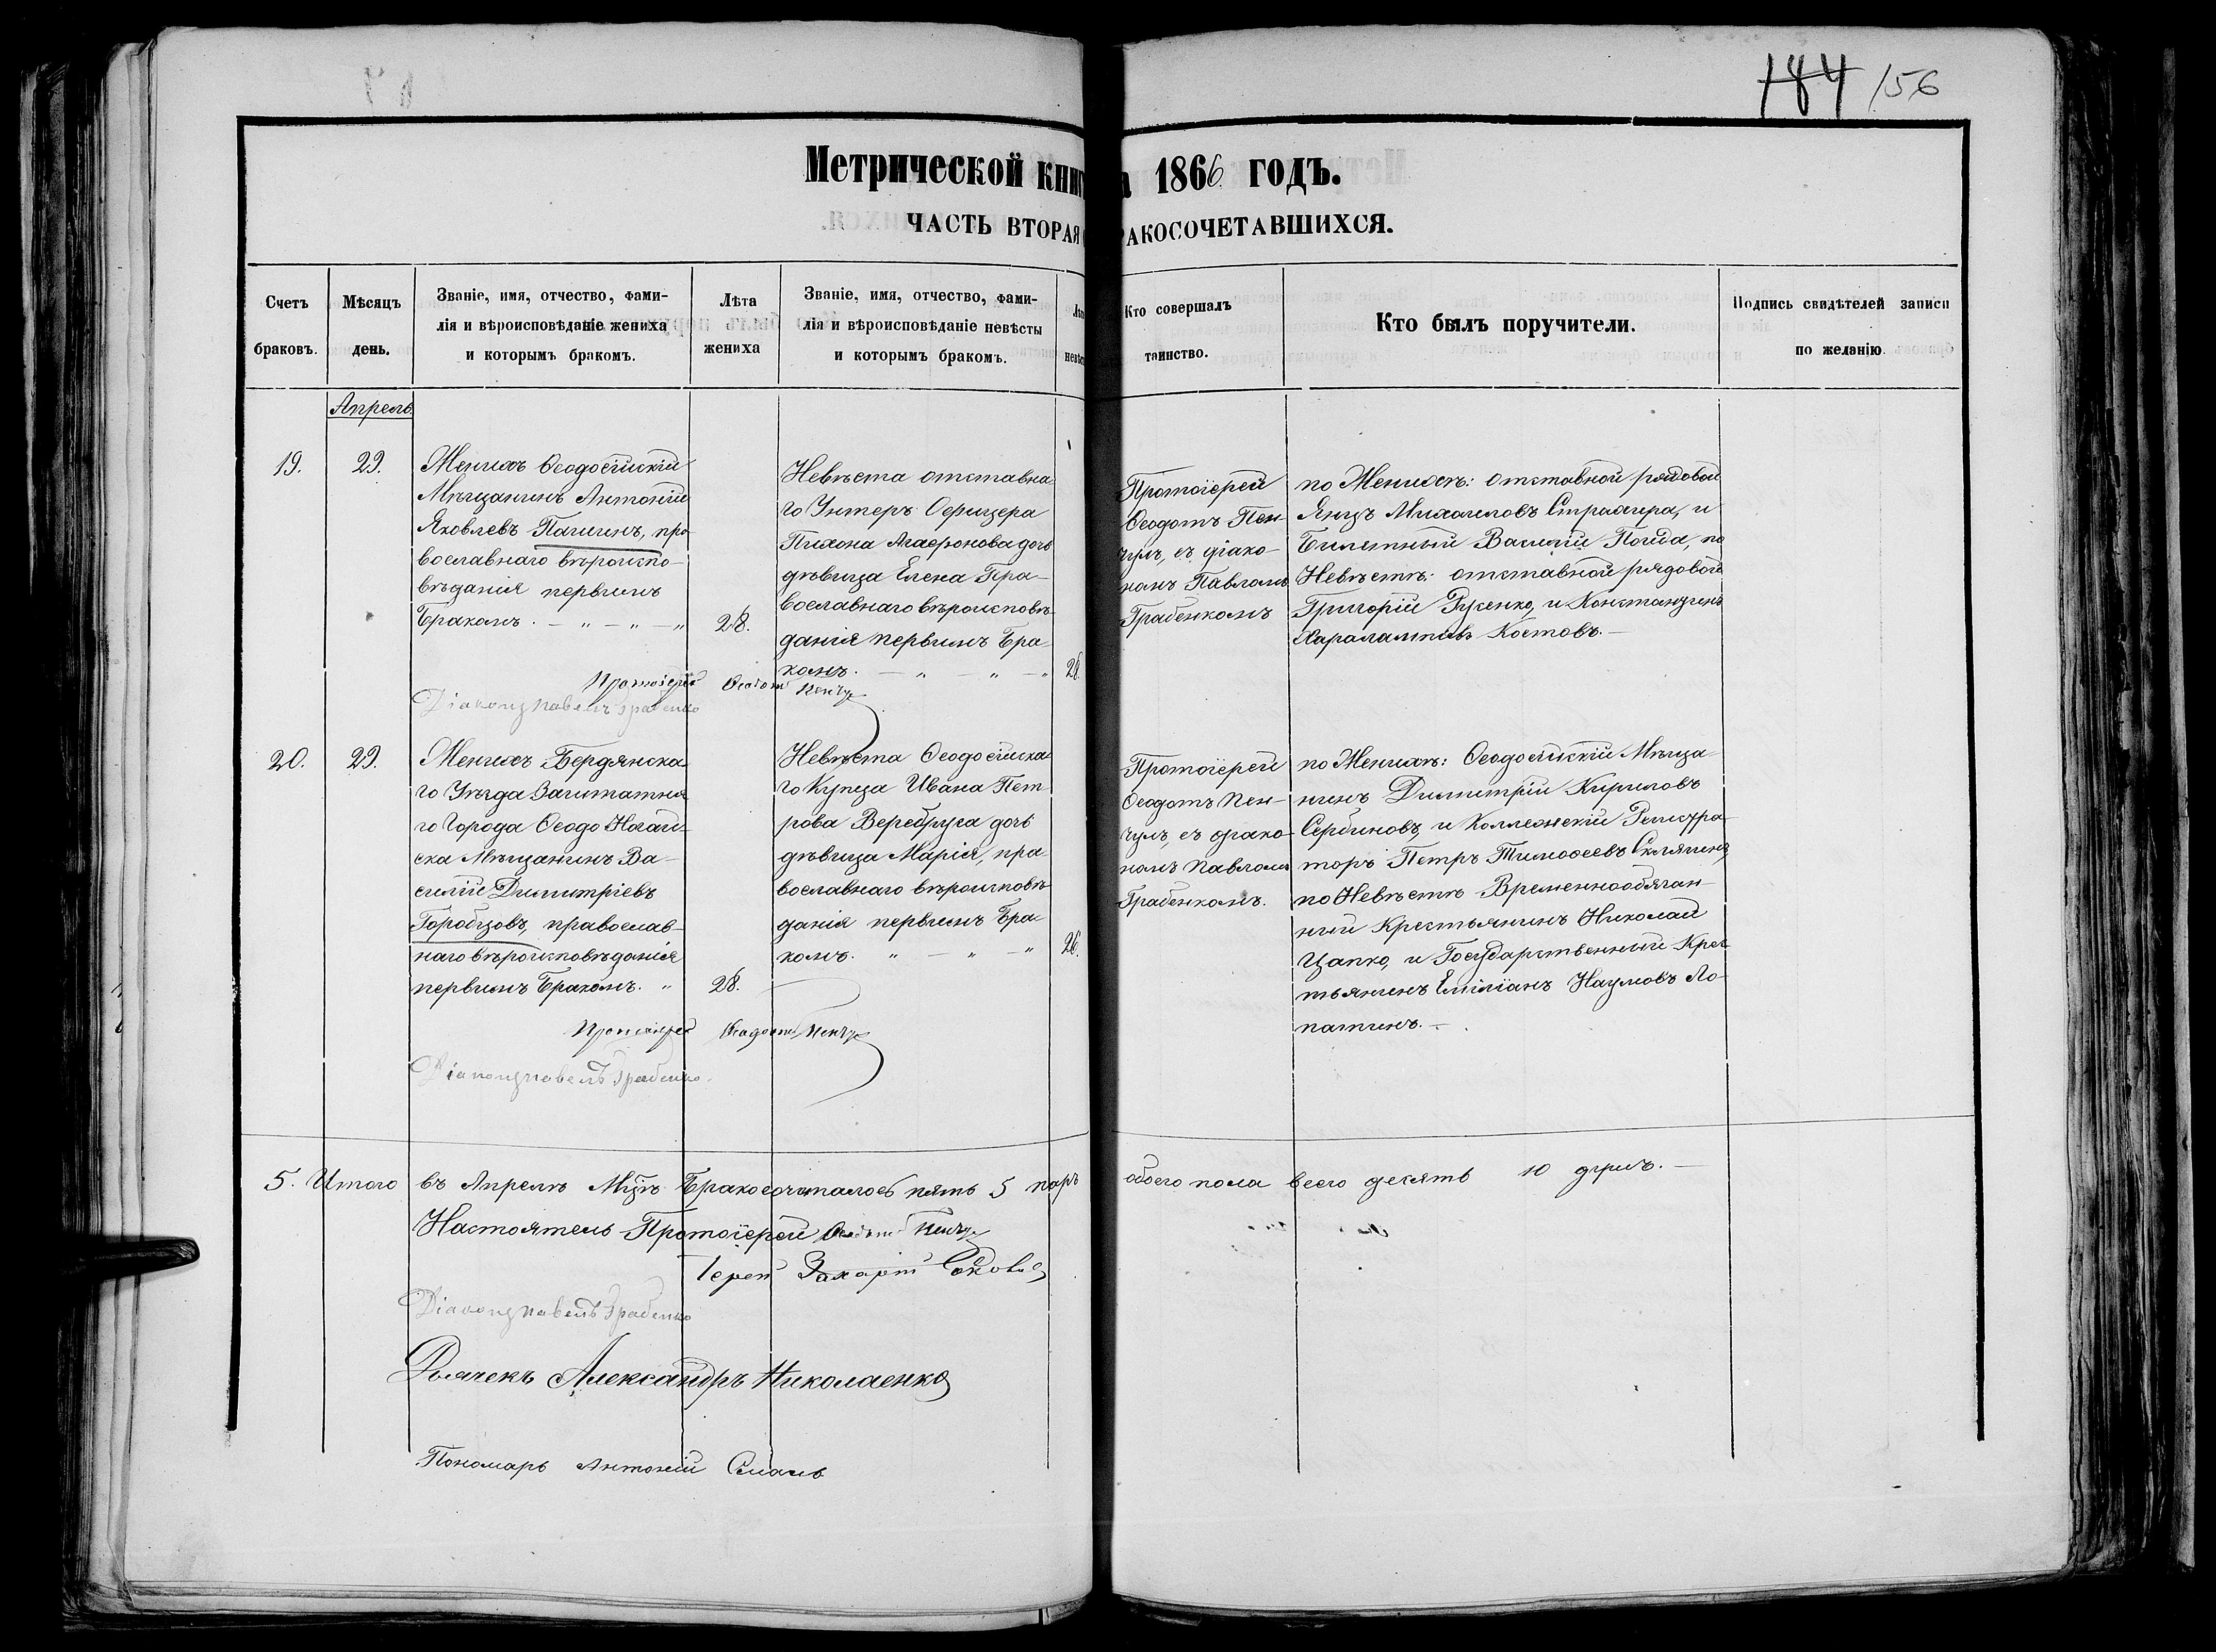 184 156
Метрической книг а 1866 годъ.
ЧАСТЬ ВТОРАЯ РАКОСОЧЕТАВШИХСЯ.
Счетъ
браковъ.
Мѣсяцъ
день.
Званіе, имя, отчество, фами-
лія и вѣроисповѣданіе жениха
и которымъ бракомъ.
Лѣта
жениха
Званіе, имя, отчество, фами-
лія и вѣроисповѣданіе невѣсты
и которымъ бракомъ.
Кто совершалъ
таинство.
Кто былъ поручители.
Подпись свидѣтелей записи
по желанію
Апрель
19.
29.
Женихъ Ѳеодосійскій
Мѣщанинъ Антоній
Яковлевъ Пачинъ, пра
вославнаго вѣроиспо-
вѣданія первымъ
Бракомъ. — „ — „ — „
28.
Невѣста отставна
го Унтеръ Офицера
Тихона Агафонова дочь
дѣвица Елена Пра-
вославнаго вѣроисповѣ-
данія первымъ Бра
комъ. — „ — „ — „
28.
Протоіерей
Ѳеодотъ Пен-
чулъ, съ діако-
номъ Павломъ
Грабенкомъ
по Женихѣ: отставной рядовой
Янъ Михаиловъ Страхира, и
Билетный Василій Поида, по
Невѣстѣ: отставной рядовой
Григорій Русенко, и Константинъ
Харалампіевъ Костовъ. —
Протоіерей Ѳеодотъ Пенчул
Діаконъ Павелъ Грабенко
20.
29.
Женихъ Бердянска
го Уѣзда Заштатна
го Города Ѳеодо Ногай-
ска Мѣщанинъ Ва-
силій Димитріевъ
Горобцовъ, православ-
наго вѣроисповѣданія
первымъ Бракомъ. „
28.
Невѣста Ѳеодосійска
го Купца Ивана Пет
рова Веребруса дочь
дѣвица Марія, пра-
вославнаго вѣроисповѣ
данія первымъ Бра-
комъ. „ — „ — „
26.
Протоіерей
Ѳеодотъ Пен-
чулъ, съ діако-
номъ Павломъ
Грабенкомъ.
по Женихѣ: Ѳеодосійскій Мѣща-
нинъ Димитрій Кириловъ
Сербиновъ, и Коллежскій Регистра-
торъ Петръ Тимофеевъ Склягинъ,
по Невѣстѣ Временнообязан-
ный Крестьянинъ Николай
Цапко, и Государственный Крес
тьянинъ Емиліанъ Наумовъ Ло-
патинъ. —
Протоіерей Ѳеодотъ Пенчул
Діаконъ Павелъ Грабенко.
5. Итого въ Апрелѣ Мцѣ Бракосочеталось пять 5 паръ обоего пола всего десять 10 душъ. —
Настоятель Протоіерей Ѳеодотъ Пенчул
Іерей Захарій
Діаконъ Павелъ Грабенко
Дьячекъ Александръ Николаенко
Пономарь Антоній